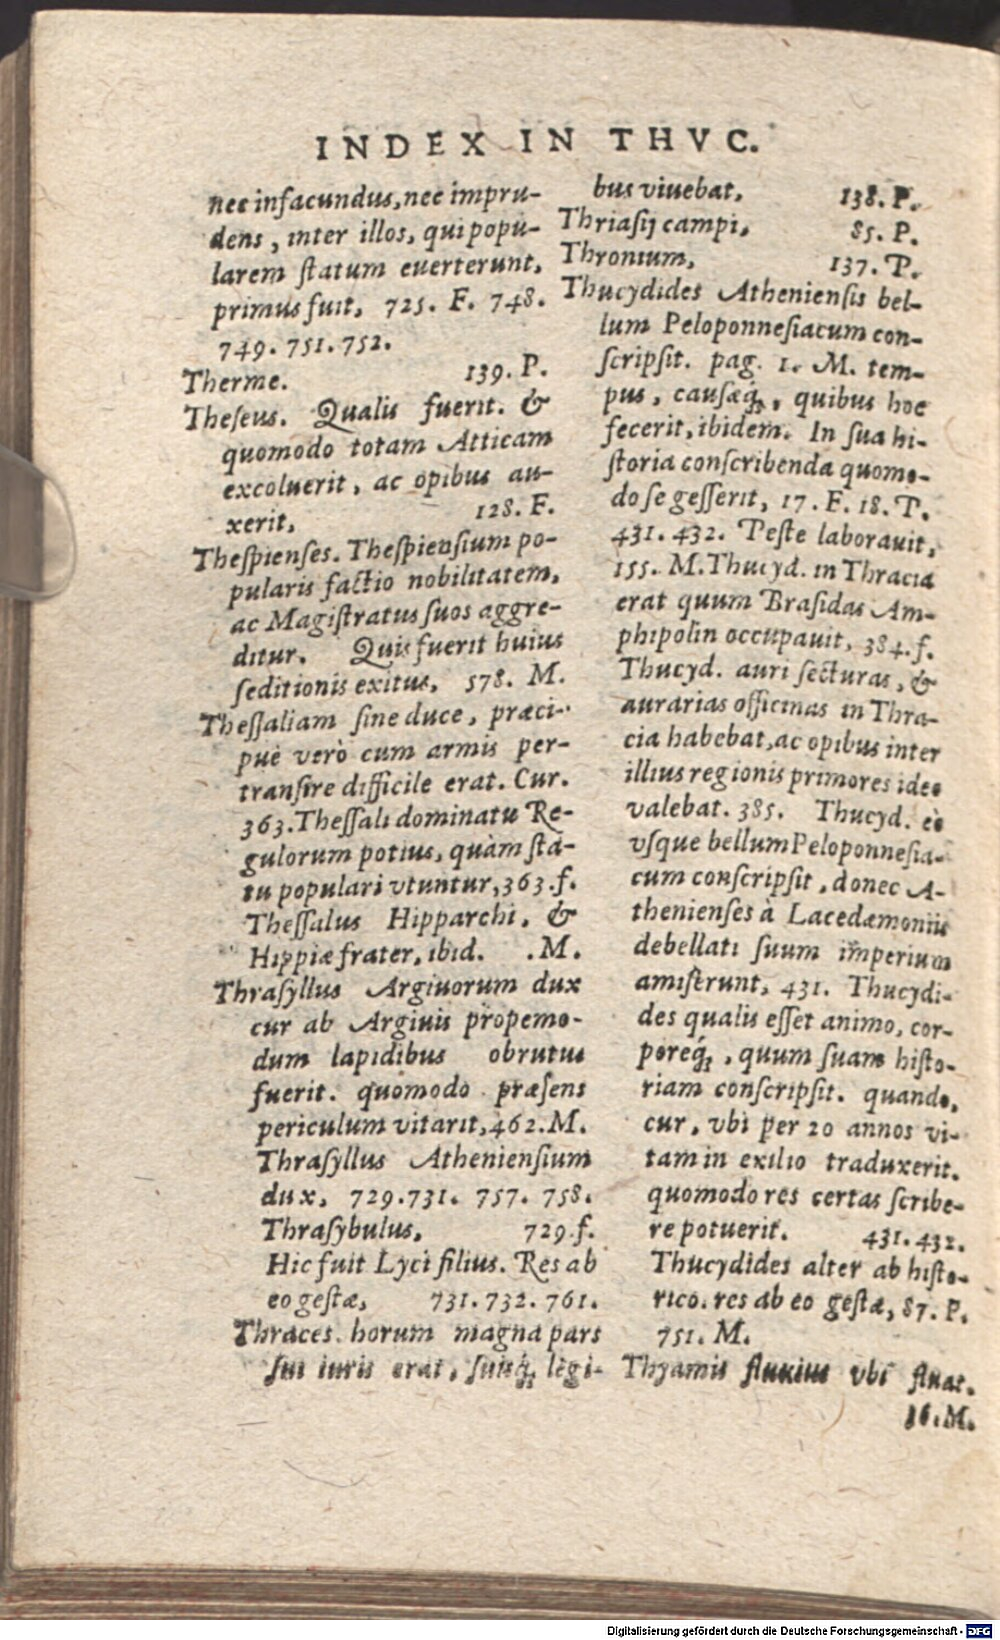 INDEX IN THVC.
nec infacundus, nec impru-
dens, inter illos, qui popu-
larem statum euerterunt,
primus fuit, 725. F. 748.
749. 751. 752.
Therme. 139. P.
Theseus. Qualis fuerit. &
quomodo totam Atticam
excoluerit, ac opibus au-
xerit, 128. F.
Thespienses. Thespiensium po-
pularis factio nobilitatem,
ac Magistratus suos aggre-
ditur. Quis fuerit huius
seditionis exitus, 578. M.
Thessaliam sine duce, præci-
puè verò cum armis per-
transire difficile erat. Cur.
363. Thessali dominatu Re-
gulorum potius, quàm sta-
tu populari vtuntur, 363. f.
Thessalus Hipparchi, &
Hippiæ frater, ibid. . M.
Thrasyllus Argiuorum dux
cur ab Argiuis propemo-
dum lapidibus obrutus
fuerit. quomodo præsens
periculum vitarit, 462. M.
Thrasyllus Atheniensium
dux, 729. 731. 757. 758.
Thrasybulus, 729. f.
Hic fuit Lyci filius. Res ab
eo gestæ, 731. 732. 761.
Thraces. horum magna pars
sui iuris erat, suisq́; legi-
bus viuebat, 138. P.
Thriasij campi, 85. P.
Thronium, 137. P.
Thucydides Atheniensis bel-
lum Peloponnesiacum con-
scripsit. pag. 1. M. tem-
pus, causæq́;, quibus hoc
fecerit, ibidem. In sua hi-
storia conscribenda quomo-
do se gesserit, 17. F. 18. P.
431. 432. Peste laborauit,
155. M. Thucyd. in Thracia
erat quum Brasidas Am-
phipolin occupauit, 384. f.
Thucyd. auri secturas, &
aurarias officinas in Thra-
cia habebat, ac opibus inter
illius regionis primores ideo
valebat. 385. Thucyd. eò
vsque bellum Peloponnesia-
cum conscripsit, donec A-
thenienses à Lacedæmoniis
debellati suum imperium
amiserunt, 431. Thucydi-
des qualis esset animo, cor-
poreq́;, quum suam histo-
riam conscripsit. quando,
cur, vbi per 20 annos vi-
tam in exilio traduxerit.
quomodo res certas scribe-
re potuerit. 431. 432.
Thucydides alter ab histo-
rico. res ab eo gestæ, 87. P.
751. M.
Thyamis fluuius vbi fluat.
16. M.
Digitalisierung gefördert durch die Deutsche Forschungsgemeinschaft - DFG